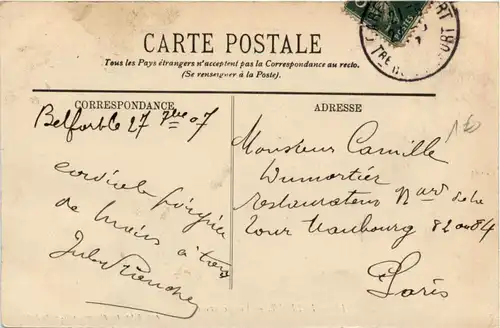 CARTE POSTALE
Tous les Pays étrangers n'acceptent pas la Correspondance au recto.
(Se renseigner à la Poste).
CORRESPONDANCE
ADRESSE
Belfort le 27 7bre 07
cordiale
de
à tous
Jules
Monsieur Camille
Dumortier
restaurateur
Tour Maubourg 82 ou 84
Paris